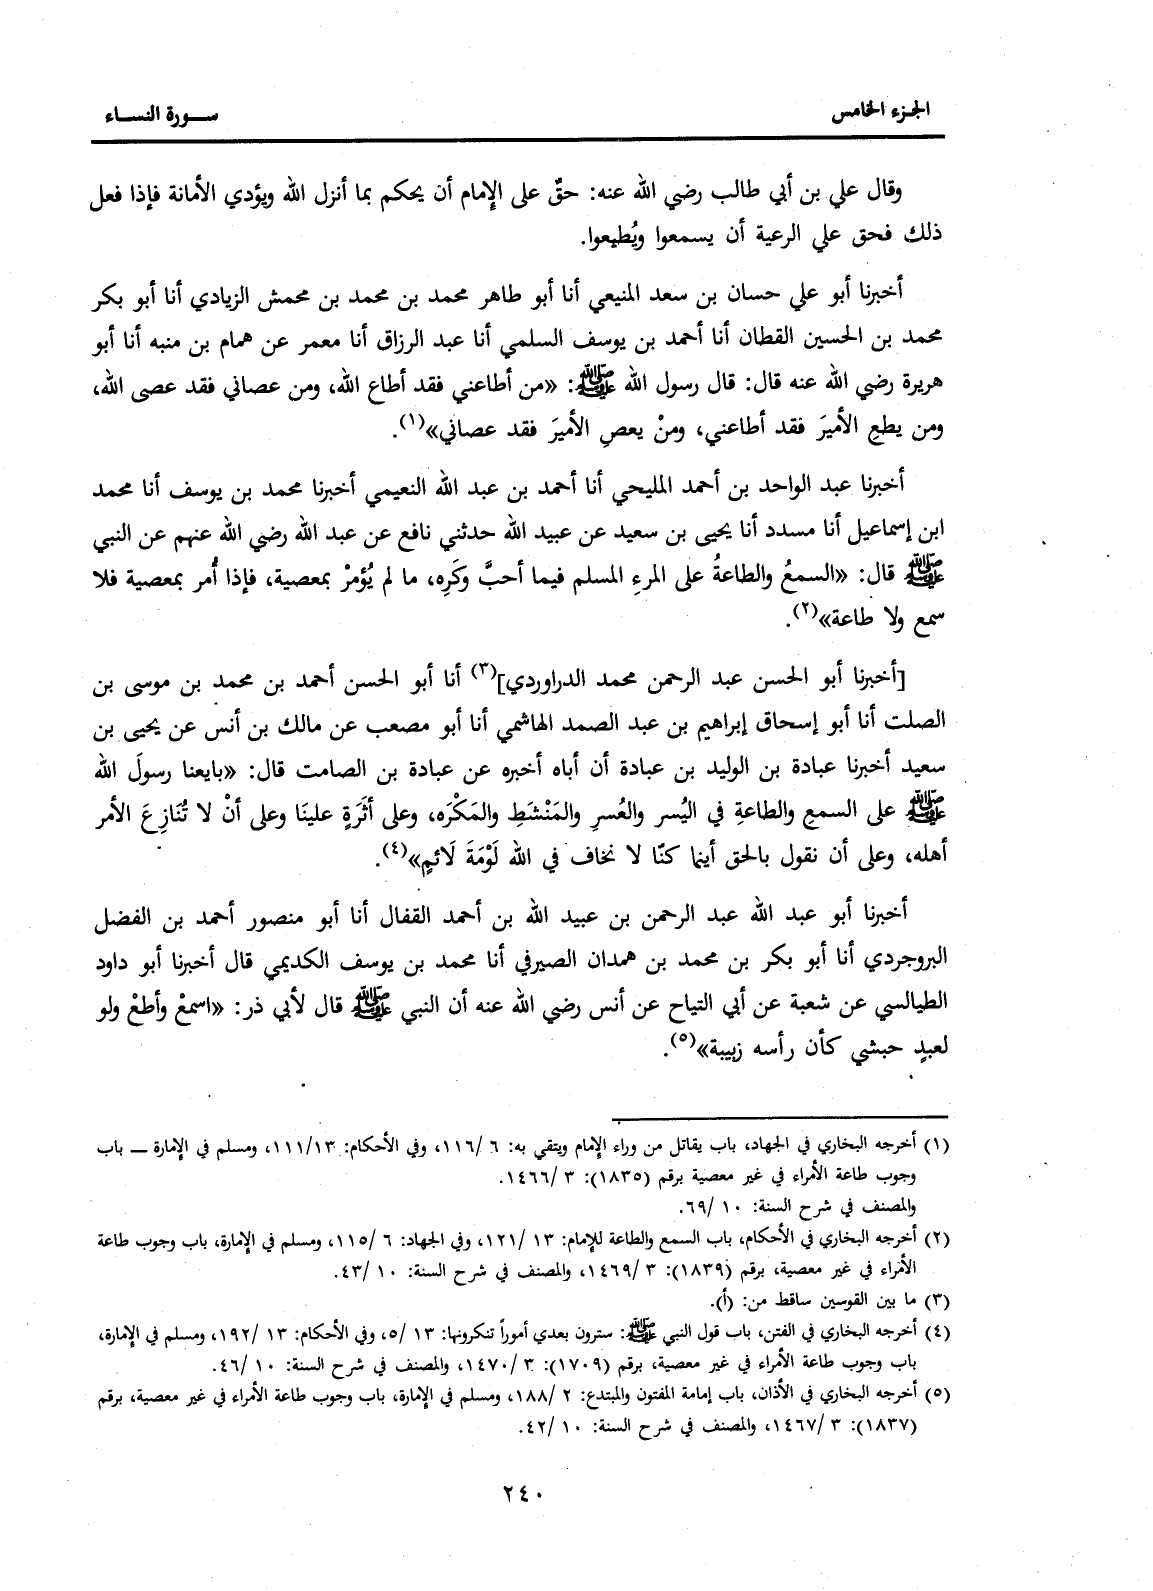 الجزء الخامس
سورة النساء
وقال علي بن أبي طالب رضي الله عنه: حقٌ على الإمام أن يحكم بما أنزل الله ويؤدي الأمانة فإذا فعل
ذلك فحق علي الرعية أن يسمعوا ويُطيعوا.
أخبرنا أبو علي حسان بن سعد المنيعي أنا أبو طاهر محمد بن محمد بن محمش الزيادي أنا أبو بكر
محمد بن الحسين القطان أنا أحمد بن يوسف السلمي أنا عبد الرزاق أنا معمر عن همام بن منبه أنا أبو
هريرة رضي الله عنه قال: قال رسول الله ﷺ: «من أطاعني فقد أطاع الله، ومن عصاني فقد عصى الله،
ومن يطعِ الأميرَ فقد أطاعني، ومنْ يعصِ الأميرَ فقد عصاني»(١).
أخبرنا عبد الواحد بن أحمد المليحي أنا أحمد بن عبد الله النعيمي أخبرنا محمد بن يوسف أنا محمد
ابن إسماعيل أنا مسدد أنا يحيى بن سعيد عن عبيد الله حدثني نافع عن عبد الله رضي الله عنهم عن النبي
ﷺ قال: «السمعُ والطاعةُ على المرءِ المسلم فيما أحبَّ وكَرِه، ما لم يُؤمرْ بمعصية، فإذا أُمر بمعصية فلا
سمع ولا طاعة»(٢).
[أخبرنا أبو الحسن عبد الرحمن محمد الدراوردي](٣) أنا أبو الحسن أحمد بن محمد بن موسى بن
الصلت أنا أبو إسحاق إبراهيم بن عبد الصمد الهاشمي أنا أبو مصعب عن مالك بن أنس عن يحيى بن
سعيد أخبرنا عبادة بن الوليد بن عبادة أن أباه أخبره عن عبادة بن الصامت قال: «بايعنا رسولَ الله
ﷺ على السمعِ والطاعةِ في اليُسر والعُسرِ والمَنْشَطِ والمَكْرَه، وعلى أثَرَةٍ علينَا وعلى أنْ لا تُنَازِعَ الأمر
أهله، وعلى أن نقول بالحق أينما كنّا لا نخاف في الله لَوْمَةَ لَائمٍ»(٤).
أخبرنا أبو عبد الله عبد الرحمن بن عبيد الله بن أحمد القفال أنا أبو منصور أحمد بن الفضل
البروجردي أنا أبو بكر بن محمد بن همدان الصيرفي أنا محمد بن يوسف الكديمي قال أخبرنا أبو داود
الطيالسي عن شعبة عن أبي التياح عن أنس رضي الله عنه أن النبي ﷺ قال لأبي ذر: «اسمعْ وأطعْ ولو
لعبدٍ حبشي كأن رأسه زبيبة»(٥).
(١) أخرجه البخاري في الجهاد، باب يقاتل من وراء الإمام ويتقي به: ٦ /١١٦، وفي الأحكام: ١١١/١٣، ومسلم في الإمارة – باب
وجوب طاعة الأمراء في غير معصية برقم (١٨٣٥): ٣ /١٤٦٦.
والمصنف في شرح السنة: ١٠ /٦٩.
(٢) أخرجه البخاري في الأحكام، باب السمع والطاعة للإمام: ١٣ /١٢١، وفي الجهاد: ٦ /١١٥، ومسلم في الإمارة، باب وجوب طاعة
الأمراء في غير معصية، برقم (١٨٣٩): ٣ /١٤٦٩، والمصنف في شرح السنة: ١٠ /٤٣.
(٣) ما بين القوسين ساقط من: (أ).
(٤) أخرجه البخاري في الفتن، باب قول النبي ﷺ: سترون بعدي أموراً تنكرونها: ١٣ /٥، وفي الأحكام: ١٣ /١٩٢، ومسلم في الإمارة،
باب وجوب طاعة الأمراء في غير معصية، برقم (١٧٠٩): ٣ /١٤٧٠، والمصنف في شرح السنة: ١٠ /٤٦.
(٥) أخرجه البخاري في الأذان، باب إمامة المفتون والمبتدع: ٢ /١٨٨، ومسلم في الإمارة، باب وجوب طاعة الأمراء في غير معصية، برقم
(١٨٣٧): ٣ /١٤٦٧، والمصنف في شرح السنة: ١٠ /٤٢.
٢٤٠